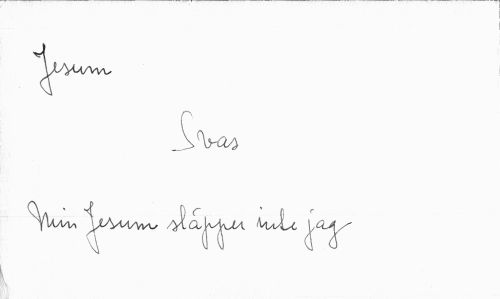 Jesum
Svas
Min Jesum släpper inte jag